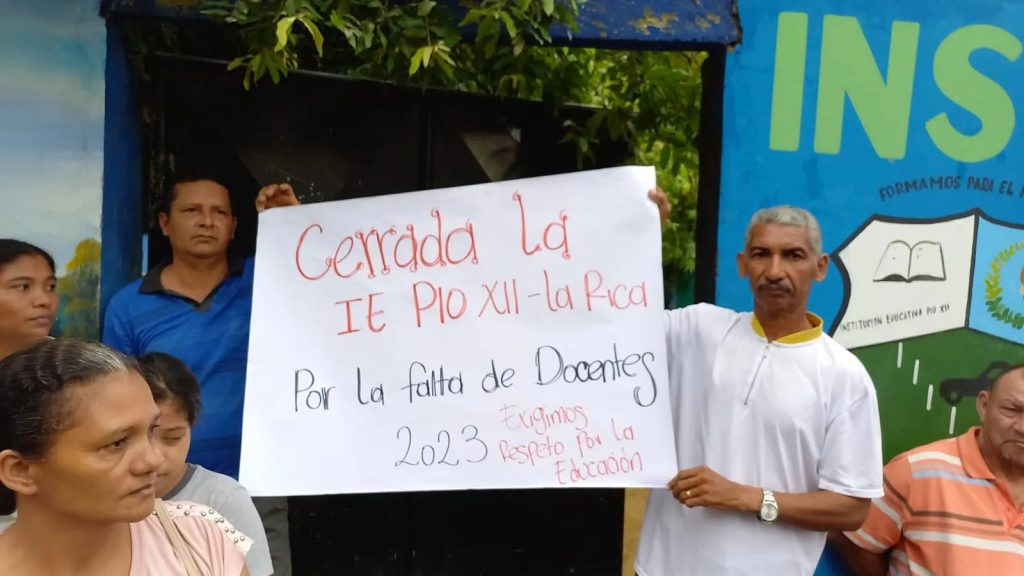 Cerrada La
IE PIO XII - la Rica
Por la falta de Docentes
2023
Exigimos
Respeto Por la
Educación
INS
FORMAMOS PARA EL
INSTITUCIÓN EDUCATIVA PIO XII